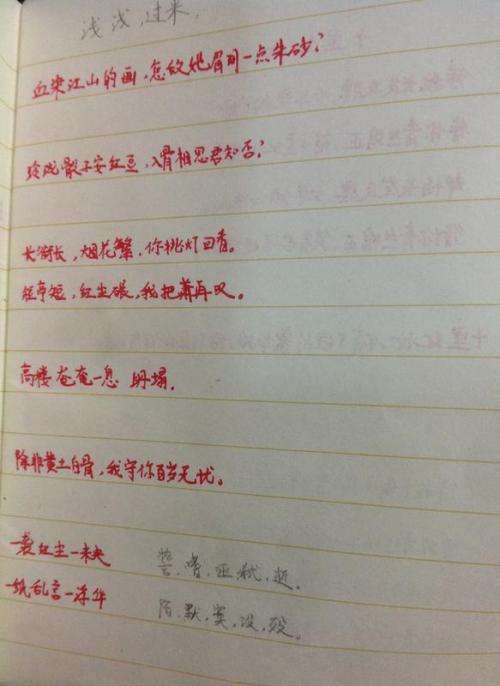 浅浅，过来，
血染江山的画，怎敌她眉间一点朱砂？
玲珑骰子安红豆，入骨相思君知否？
长街长，烟花繁，你挑灯回看。
短亭短，红尘碾，我把萧再叹。
高楼奄奄一息 坍塌，
除非黄土白骨，我守你百岁无忧。
一袭红尘一未央
一纸乱言一浮华